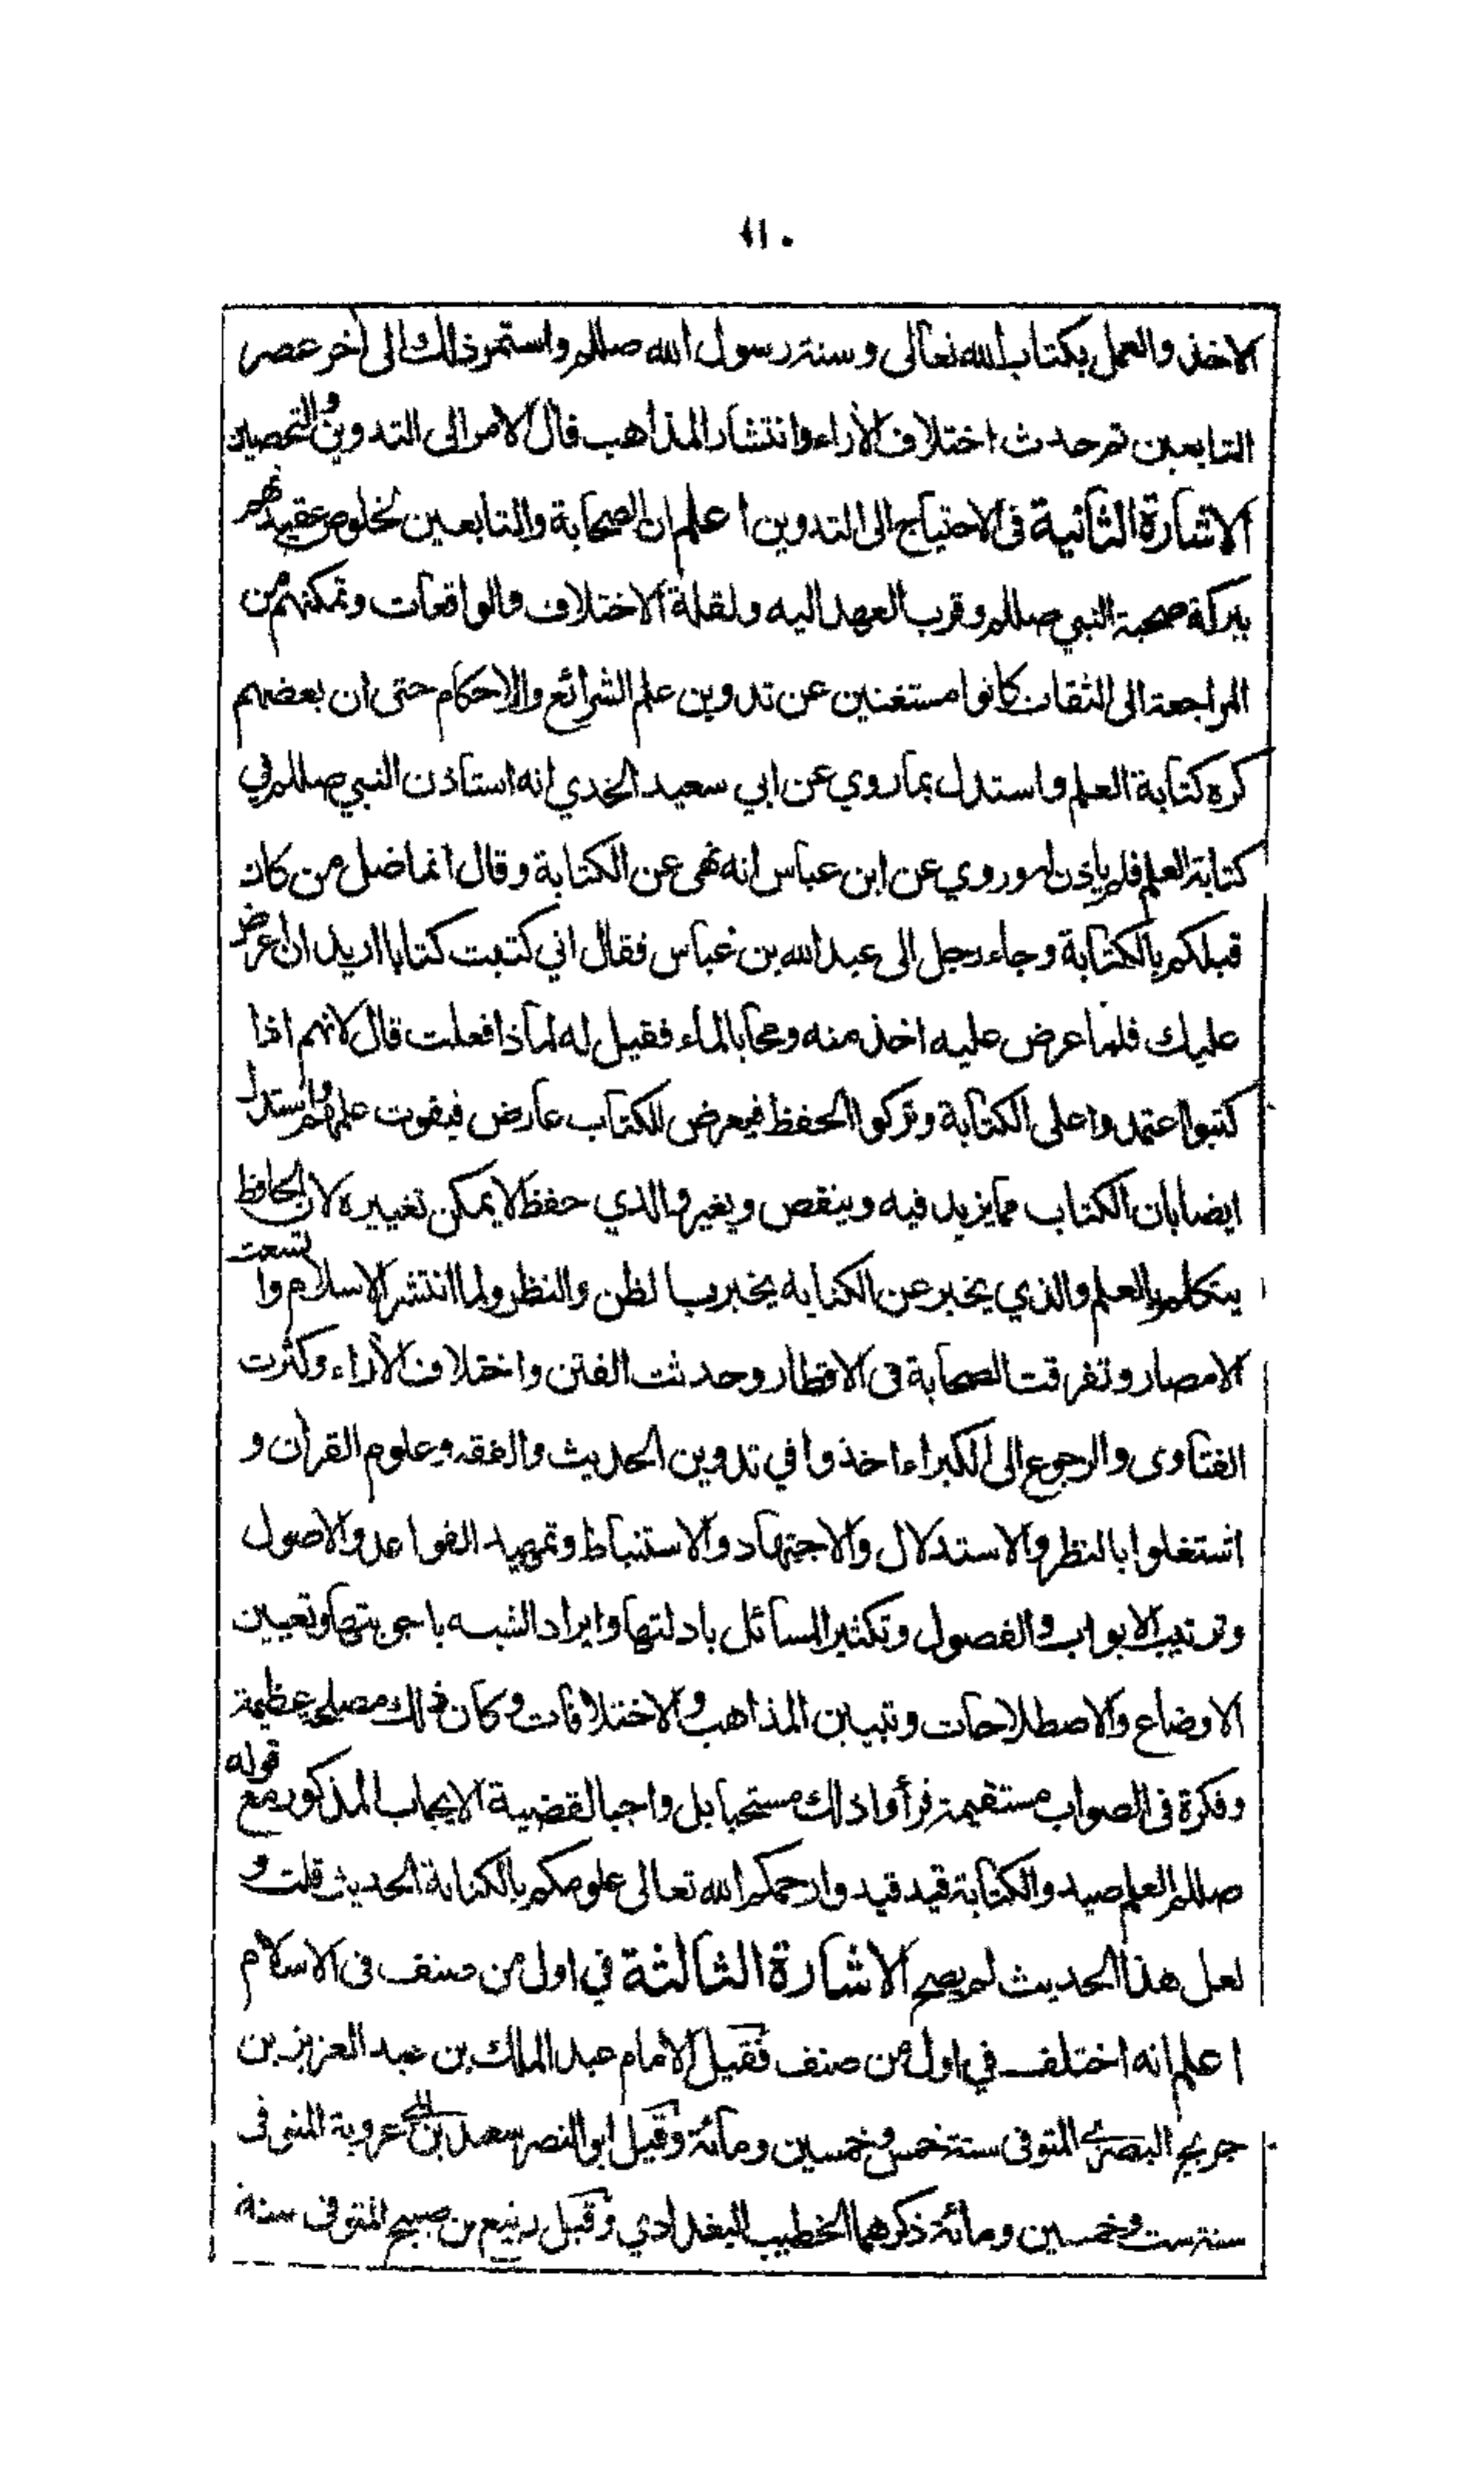 ١١٠
الاخذ والعمل بكتاب الله تعالى وسنة رسول الله صللم واستمر ذلك الى آخر عصر
التابعين ثم حدث اختلاف الآراء وانتشار المذاهب فآل الامر الى التدوين والتحصين
الاشارة الثانية فى الاحتياج الى التدوين اعلم ان الصحابة والتابعين لخلوص عقيدتهم
ببركة صحبة النبي صللم وقرب العهد اليه ولقلة الاختلاف والواقعات وتمكنهم من
المراجعة الى الثقات كانوا مستغنين عن تدوين علم الشرائع والاحكام حتى ان بعضهم
كره كتابة العلم واستدل بما روي عن ابي سعيد الخدري انه استاذن النبي صللم في
كتابة العلم فلم ياذن له وروي عن ابن عباس انه نهى عن الكتابة وقال انما ضل من كان
قبلكم بالكتابة وجاء رجل الى عبد الله بن عباس فقال اني كتبت كتابا اريد ان اعرض
عليك فلما عرض عليه اخذ منه ومحا بالماء فقيل له لماذا فعلت قال لانهم اذا
كتبوا اعتمدوا على الكتابة وتركوا الحفظ فيعرض للكتاب عارض فيفوت علمهم واستدل
ايضا بان الكتاب مما يزيد فيه وينقص ويغير والذي حفظ لا يمكن تغييره لان الحافظ
يتكلم بالعلم والذي يخبر عن الكتابه يخبر بالظن والنظر ولما انتشر الاسلام واتسعت
الامصار وتفرقت الصحابة فى الاقطار وحدثت الفتن واختلاف الآراء وكثرت
الفتاوى والرجوع الى الكبراء اخذوا في تدوين الحديث والفقه وعلوم القرآن و
اشتغلوا بالنظر والاستدلال والاجتهاد والاستنباط وتمهيد القواعد والاصول
وترتيب الابواب والفصول وتكثير المسائل بادلتها وايراد الشبه باجوبتها وتعيين
الاوضاع والاصطلاحات وتبيين المذاهب والاختلافات وكان ذلك مصلحة عظيمة
وفكرة فى الصواب مستقيمة فرأوا ذلك مستحبا بل واجبا لقضية الايجاب المذكور مع قوله
صللم العلم صيد والكتابة قيد قيدوا رحمكم الله تعالى علومكم بالكتابة الحديث قلت و
لعل هذا الحديث لم يصح الاشارة الثالثة في اول من صنف فى الاسلام
اعلم انه اختلف في اول من صنف فقيل الامام عبد الملك بن عبد العزيز بن
جريج البصري المتوفى سنة خمس وخمسين ومائة وقيل ابو النصر سعيد بن ابي عروبة المتوفى
سنة ست وخمسين ومائة ذكرهما الخطيب البغدادي وقيل ربيع بن صبيح المتوفى سنة